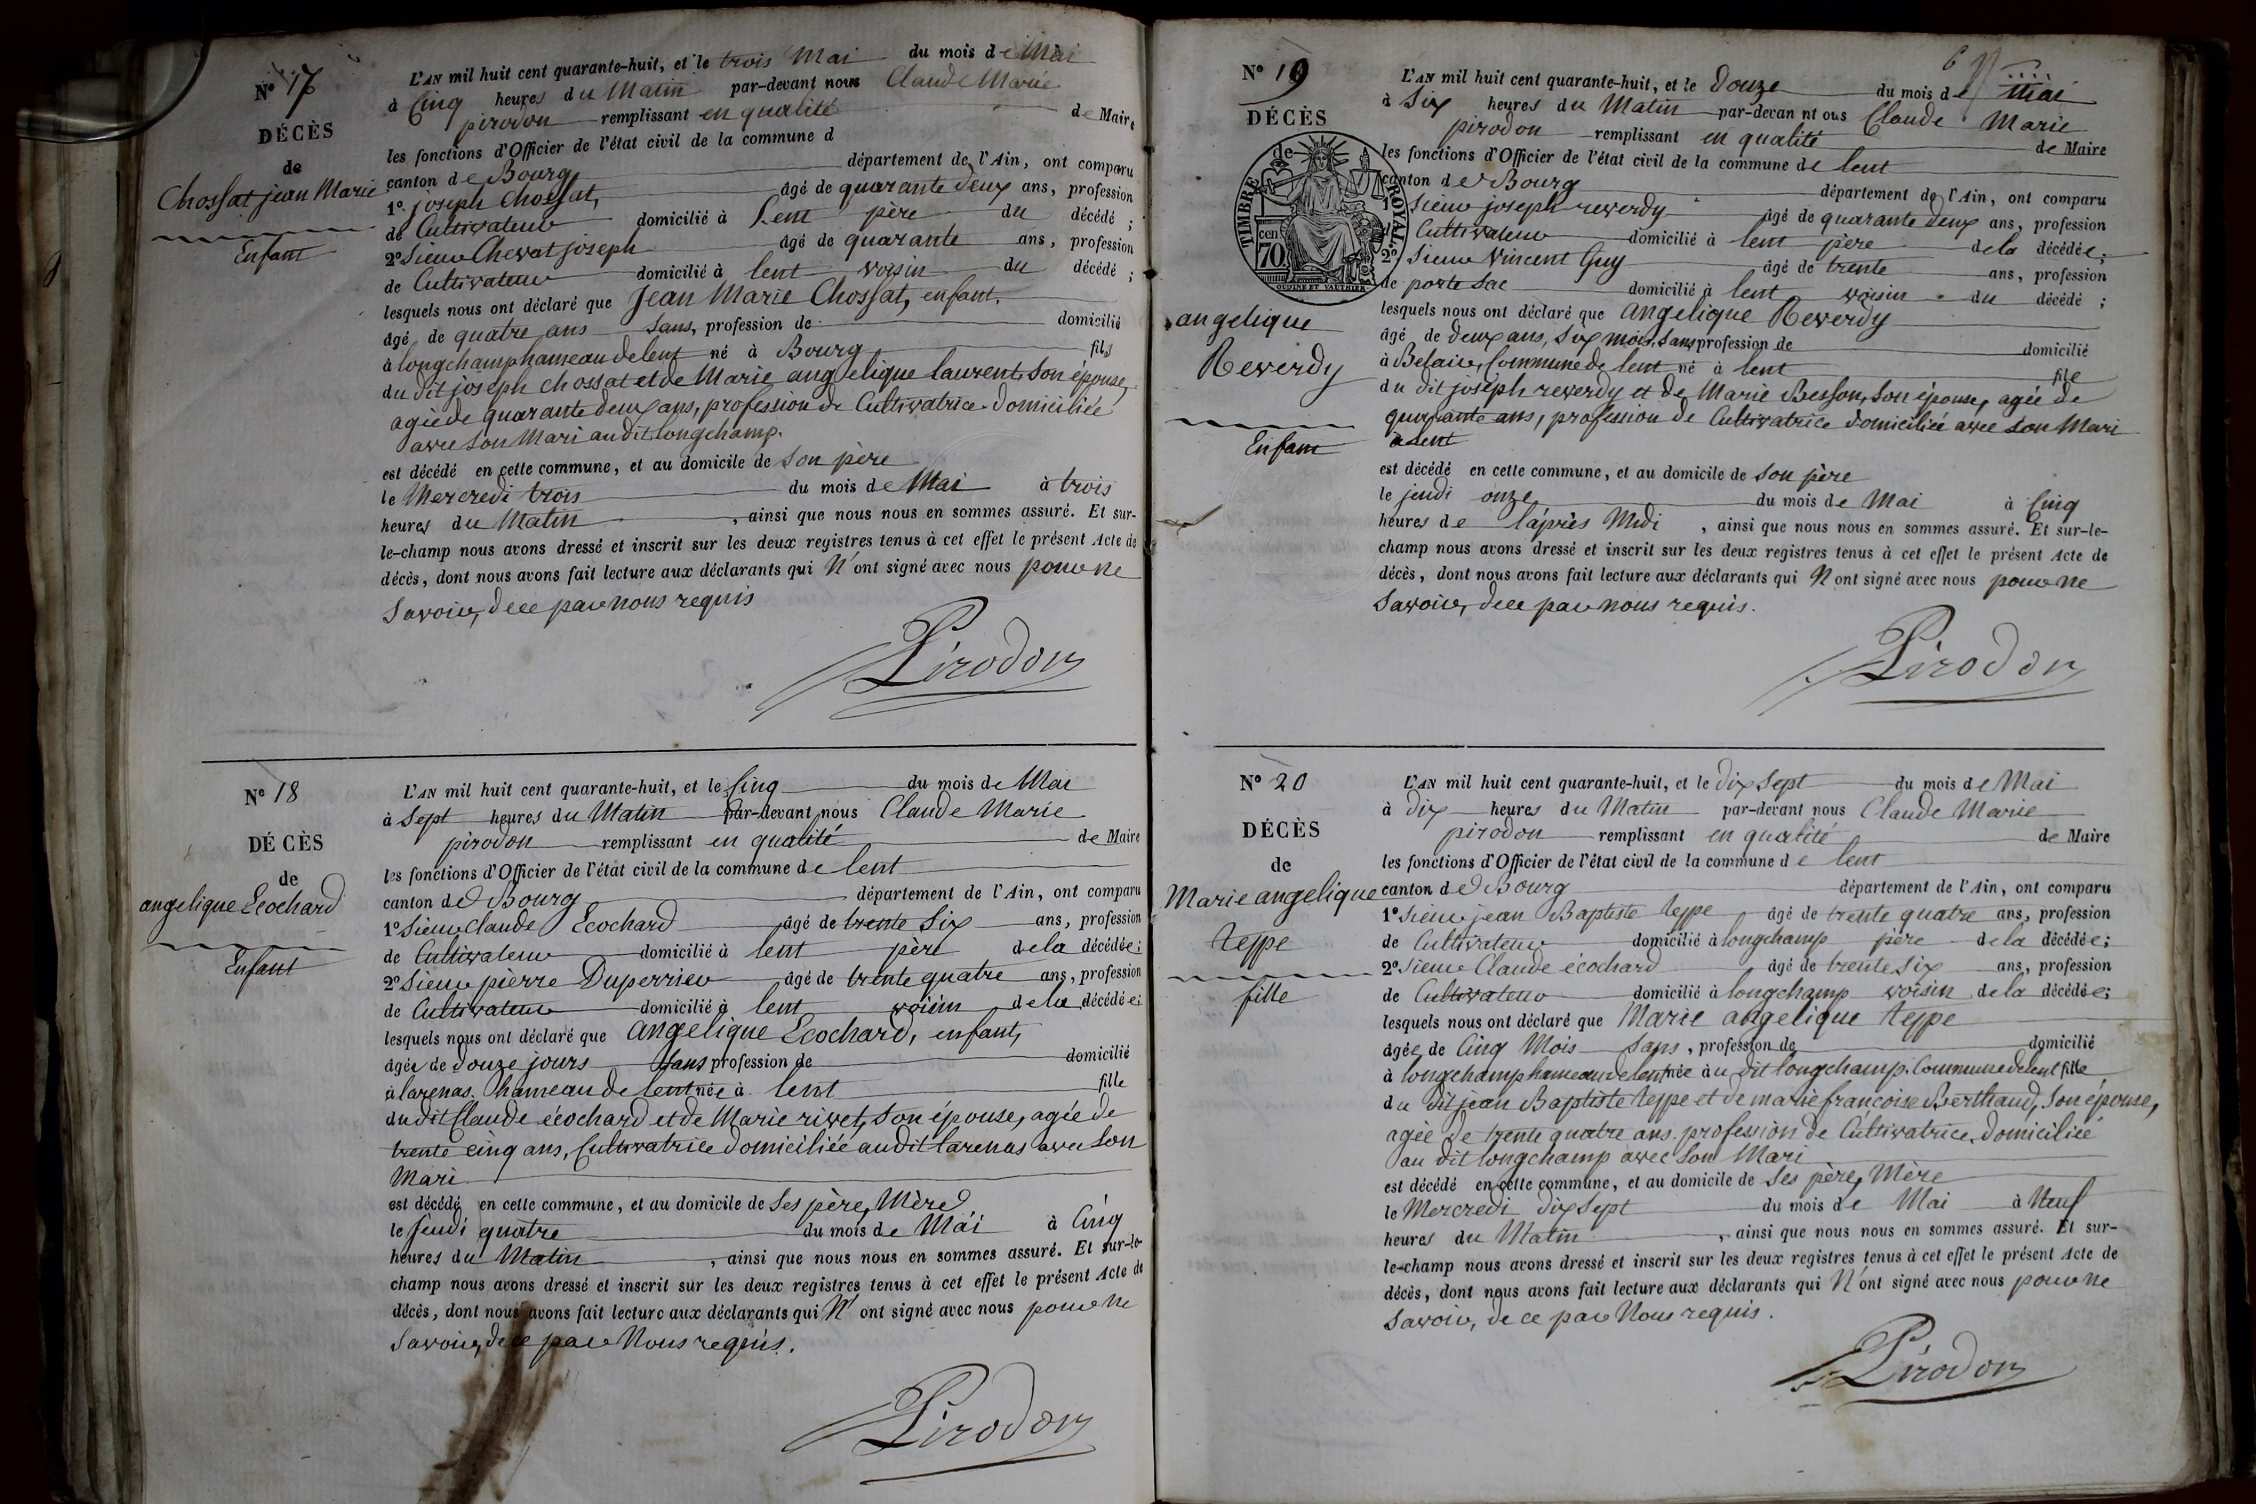 N° 17
DÉCÈS
de
Chossat jean Marie
Enfant
L'AN mil huit cent quarante-huit, et le trois Mai du mois de Mai
à Cinq heures du Matin par-devant nous Claude Marie
pirodon remplissant en qualité de Maire
les fonctions d'Officier de l'état civil de la commune d
canton de Bourg département de l'Ain, ont comparu
1° joseph Chossat, âgé de quarante deux ans, profession
de Cultivateur domicilié à Lent père du décédé ;
2° Sieur Chevat joseph âgé de quarante ans, profession
de Cultivateur domicilié à lent voisin du décédé ;
lesquels nous ont déclaré que Jean Marie Chossat, enfant,
âgé de quatre ans sans, profession de domicilié
à longchamp hameau de lent né à Bourg fils
du dit joseph chossat et de Marie angelique laurent, son épouse,
agée de quarante deux ans, profession de Cultivatrice domiciliée
avec son Mari au dit longchamp.
est décédé en cette commune, et au domicile de son père
le Mercredi trois du mois de Mai à trois
heures du Matin, ainsi que nous nous en sommes assuré. Et sur-
le-champ nous avons dressé et inscrit sur les deux registres tenus à cet effet le présent Acte de
décès, dont nous avons fait lecture aux déclarants qui N'ont signé avec nous pour ne
Savoir, de ce par nous requis
Pirodon
N° 18
DÉCÈS
de
angelique Ecochard
Enfant
L'AN mil huit cent quarante-huit, et le Cinq du mois de Mai
à Sept heures du Matin par-devant nous Claude Marie
pirodon remplissant en qualité de Maire
les fonctions d'Officier de l'état civil de la commune de lent
canton de Bourg département de l'Ain, ont comparu
1° Sieur Claude Ecochard âgé de trente Six ans, profession
de Cultivateur domicilié à lent père de la décédée ;
2° Sieur pierre Duperrier âgé de trente quatre ans, profession
de Cultivateur domicilié à lent voisin de la décédée ;
lesquels nous ont déclaré que angelique Ecochard, enfant,
âgée de douze jours sans profession de domicilié
à larenas hameau de lent née à lent fille
du dit Claude écochard et de Marie rivet, son épouse, agée de
trente cinq ans, Cultivatrice domiciliée au dit larenas avec son
Mari
est décédé en cette commune, et au domicile de Ses père, Mère
le Jeudi quatre du mois de Mai à Cinq
heures du Matin, ainsi que nous nous en sommes assuré. Et sur-le-
champ nous avons dressé et inscrit sur les deux registres tenus à cet effet le présent Acte de
décès, dont nous avons fait lecture aux déclarants qui N'ont signé avec nous pour ne
Savoir, de ce par Nous requis.
Pirodon
6
N° 19
DÉCÈS
de
TIMBRE ROYAL
cen
70
angelique
Reverdy
Enfant
L'AN mil huit cent quarante-huit, et le Douze du mois de Mai
à Six heures du Matin par-devan nt ous Claude Marie
pirodon remplissant en qualité de Maire
les fonctions d'Officier de l'état civil de la commune de lent
canton de Bourg département de l'Ain, ont comparu
Sieur joseph reverdy âgé de quarante deux ans, profession
Cultivateur domicilié à lent père de la décédée ;
2° Sieur Vincent Guy âgé de trente ans, profession
de porte sac domicilié à lent voisin du décédé ;
lesquels nous ont déclaré que angelique Reverdy
âgé de deux ans, Six mois, sans profession de domicilié
à Belair, Commune de lent né à lent file
du dit joseph reverdy et de Marie Besson, son épouse, agée de
quarante ans, profession de Cultivatrice domiciliée avec son Mari
a lent
est décédé en cette commune, et au domicile de son père
le jeudi onze du mois de Mai à Cinq
heures de l'après Midi, ainsi que nous nous en sommes assuré. Et sur-le-
champ nous avons dressé et inscrit sur les deux registres tenus à cet effet le présent Acte de
décès, dont nous avons fait lecture aux déclarants qui N'ont signé avec nous pour ne
Savoir, de ce par nous requis.
Pirodon
N° 20
DÉCÈS
de
Marie angelique
teppe
fille
L'AN mil huit cent quarante-huit, et le dix Sept du mois de Mai
à dix heures du Matin par-devant nous Claude Marie
pirodon remplissant en qualité de Maire
les fonctions d'Officier de l'état civil de la commune de lent
canton de Bourg département de l'Ain, ont comparu
1° Sieur jean Baptiste teppe âgé de trente quatre ans, profession
de Cultivateur domicilié à longchamp père de la décédée ;
2° Sieur Claude écochard âgé de trente Six ans, profession
de Cultivateur domicilié à longchamp voisin de la décédée ;
lesquels nous ont déclaré que Marie angelique teppe
âgée de Cinq Mois sans, profession de domicilié
à longchamp hameau de lent née au dit longchamp. Commune de lent fille
du dit jean Baptiste teppe et de marie françoise Berthaud, Son épouse,
agée de trente quatre ans. profession de Cultivatrice, domiciliée
au dit longchamp avec Son Mari
est décédé en cette commune, et au domicile de Ses père, Mère
le Mercredi dix Sept du mois de Mai à Neuf
heures du Matin, ainsi que nous nous en sommes assuré. Et sur-
le-champ nous avons dressé et inscrit sur les deux registres tenus à cet effet le présent Acte de
décès, dont nous avons fait lecture aux déclarants qui N'ont signé avec nous pour ne
Savoir, de ce par Nous requis.
Pirodon